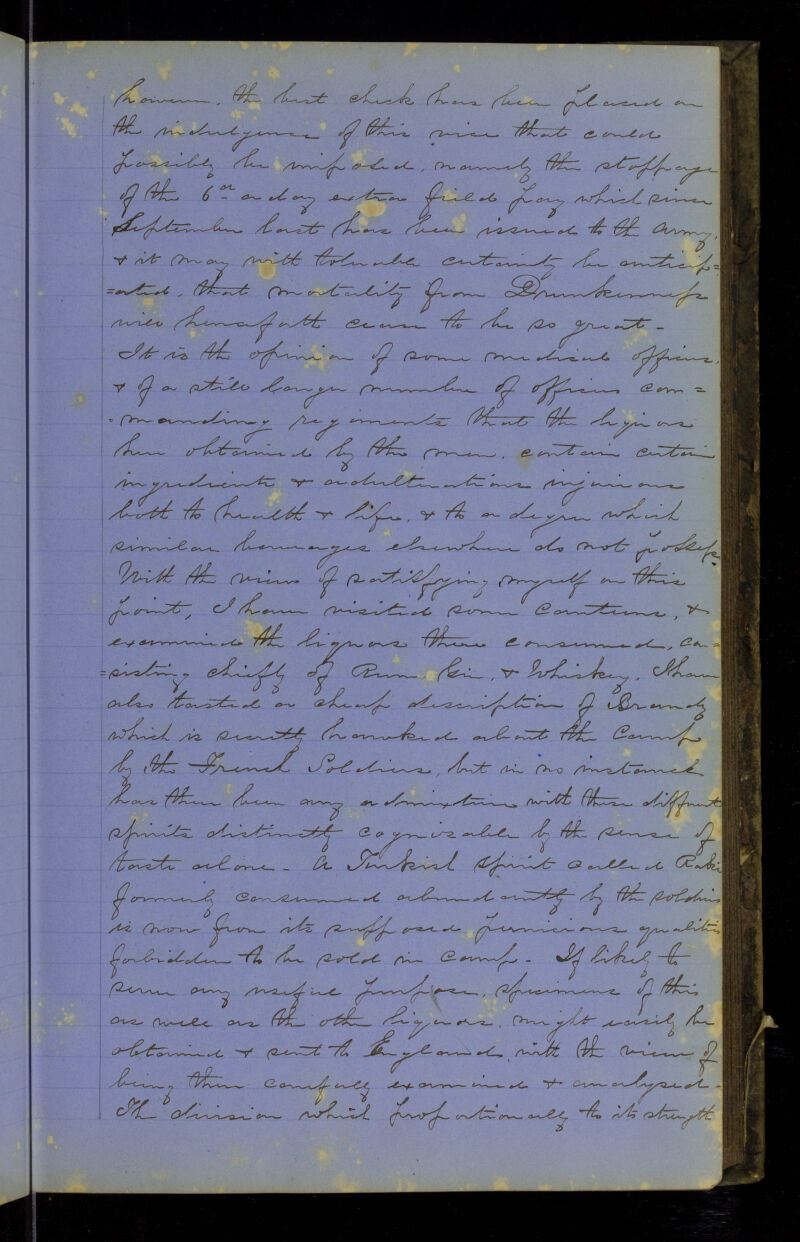 however, the best check has been placed on
the indulgence of this vice that could
possibly be imposed, namely the stoppage
of the 6d a day extra field pay which since
September last has been issued to the Army,
& it may with tolerable certainty be anticip=
=ated, that mortality from Drunkenness
will henceforth cease to be so great -
It is the opinion of some medical officers,
& of a still larger number of officers com=
=manding regiments that the liquors
here obtained by the men, contain certain
ingredients & adulterations injurious
both to health & life, & to a degree which
similar beverages elsewhere do not possess.
With the view of satisfying myself on this
point, I have visited some Canteens, &
examined the liquors there consumed, con=
=sisting chiefly of Rum, Gin, & Whiskey. I have
also tasted a cheap description of Brandy
which is secretly hawked about the Camp
by the French Soldiers, but in no instance
has there been any admixture with these different
spirits distinctly cognisable by the sense of
taste alone - A Turkish spirit called Raki
formerly consumed abundantly by the soldiers
is now from its supposed pernicious qualities
forbidden to be sold in Camp - If likely to
serve any useful purpose, specimens of this
as well as the other liquors, might easily be
obtained & sent to England, with the view of
being there carefully examined & analysed -
The division which proportionally to its strength